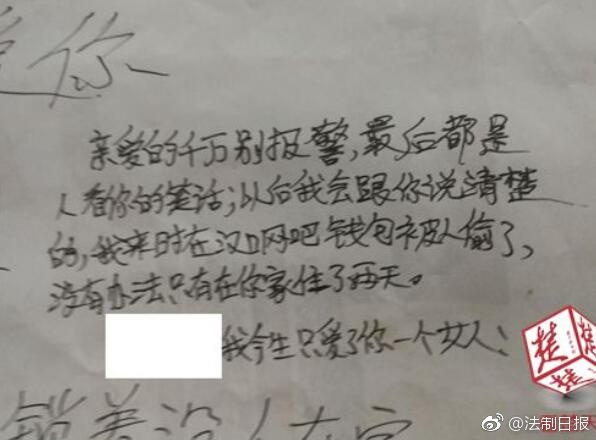 爱你
亲爱的千万别报警，最后都是
人看你的笑话；以后我会跟你说清楚
的，我来时在汉口网吧钱包被人偷了，
没有办法只有在你家住了两天。
我今生只爱了你一个女人；
锁着没人在家
楚楚
楚天
@法制日报